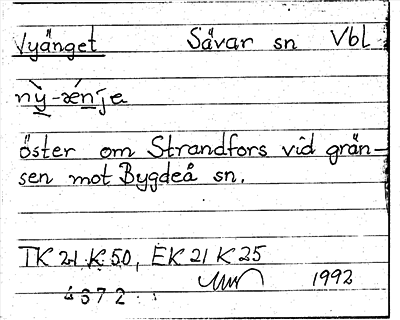 Vyänget Sävar sn Vbl
nỳ-ǽnje
öster om Strandfors vid grän-
sen mot Bygdeå sn.
TK 21 K 50, EK 21 K 25
1992
4372